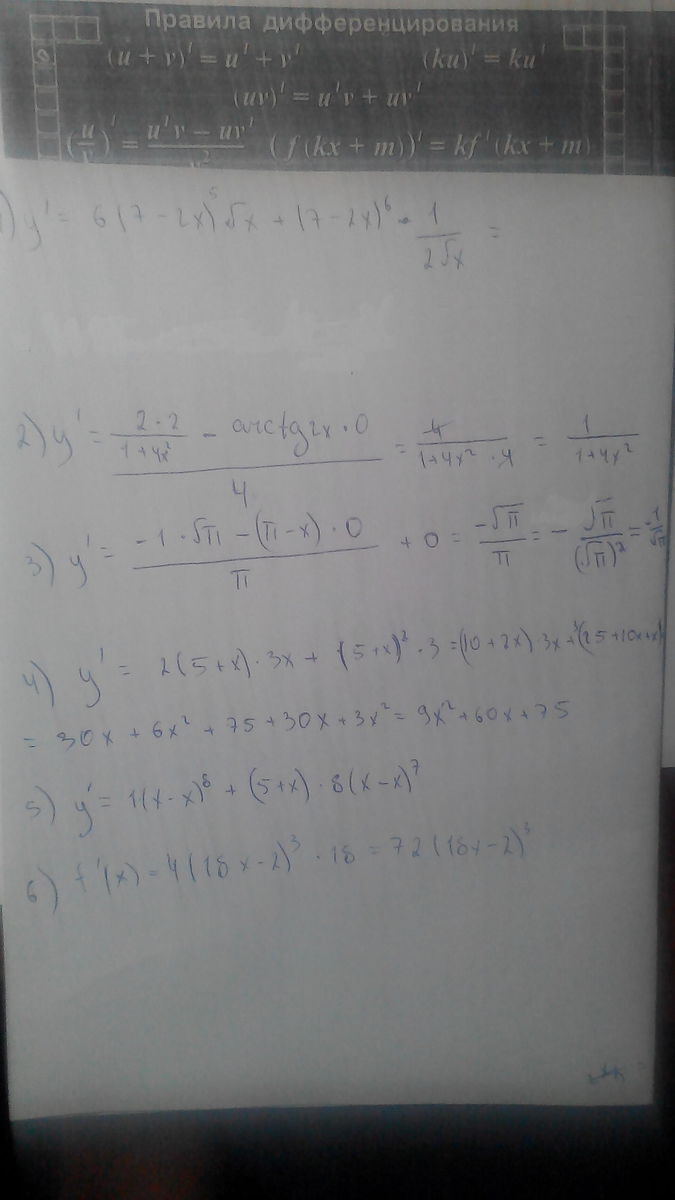 Правила дифференцирования
(u + v)' = u' + v' (ku)' = ku'
(uv)' = u'v + uv'
(u/v)' = (u'v − uv')/v² (f(kx + m))' = kf'(kx + m)
1) y' = 6(7 − 2x)⁵√x + (7 − 2x)⁶ · 1/(2√x) =
2) y' = (2·2/(1+4x²) − arctg2x · 0)/4 = 4/(1+4x² · 4) = 1/(1+4x²)
3) y' = (−1 · √π − (π−x) · 0)/π + 0 = −√π/π = − √π/(√π)² = −1/√π
4) y' = 2(5+x)·3x + (5+x)² · 3 = (10+2x)·3x + 3(25+10x+x²)
= 30x + 6x² + 75 + 30x + 3x² = 9x² + 60x + 75
5) y' = 1(x−x)⁸ + (5+x) · 8(x−x)⁷
6) f'(x) = 4(18x−2)³ · 18 = 72(18x−2)³